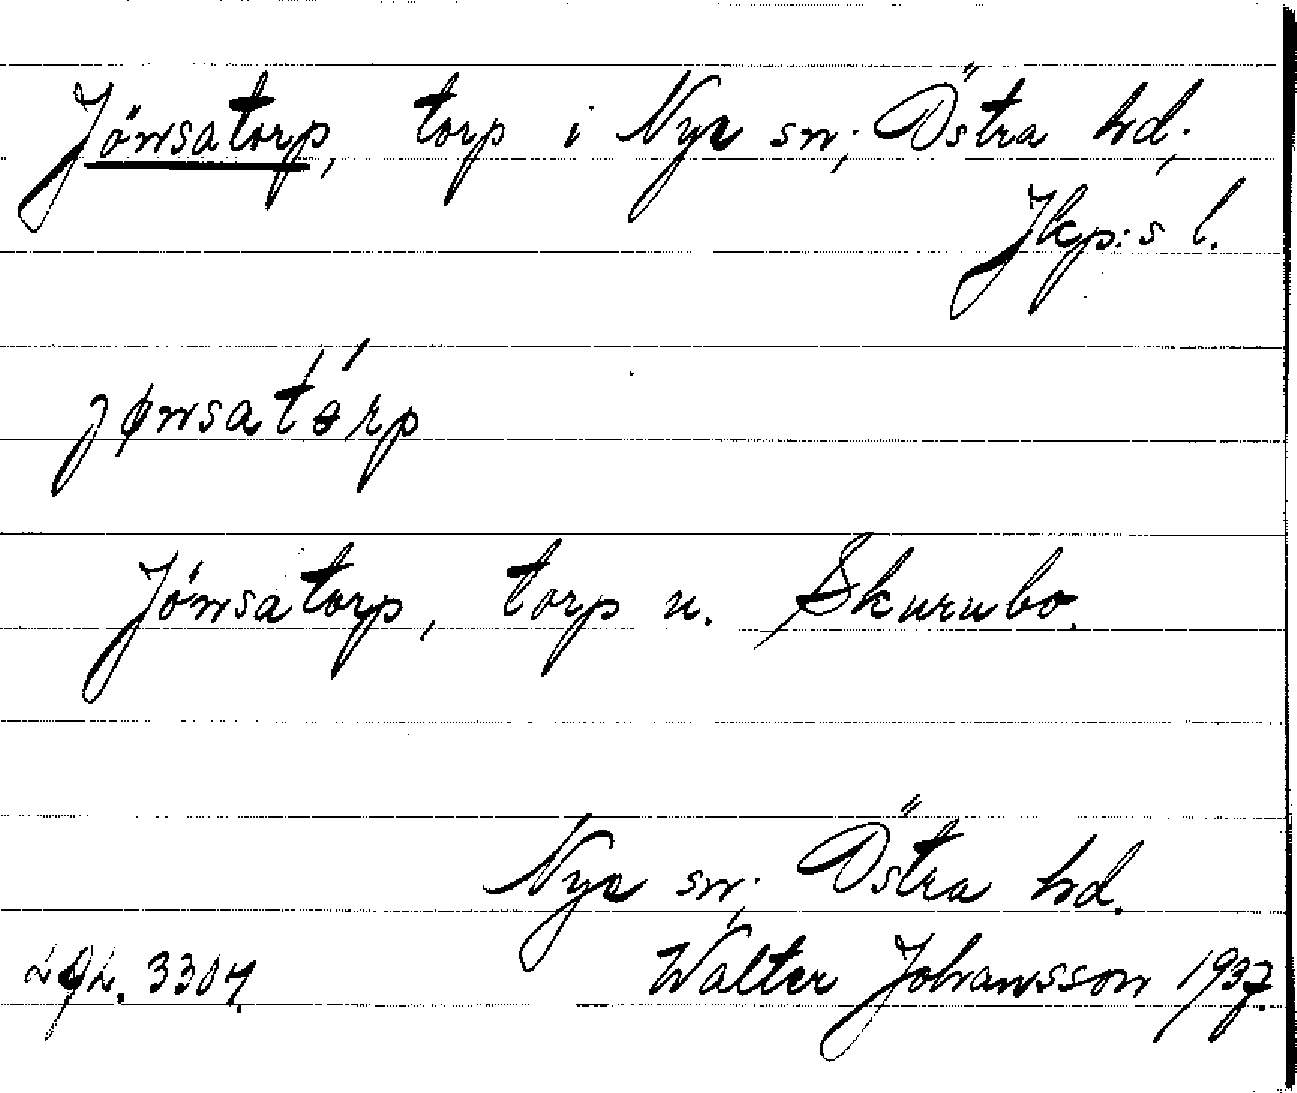 Jönsatorp, torp i Nye sn; Östra hd;
Jkp:s l.
jønsatørp
Jönsatorp, torp u. Skurubo.
Nye sn; Östra hd.
Walter Johansson 1937.